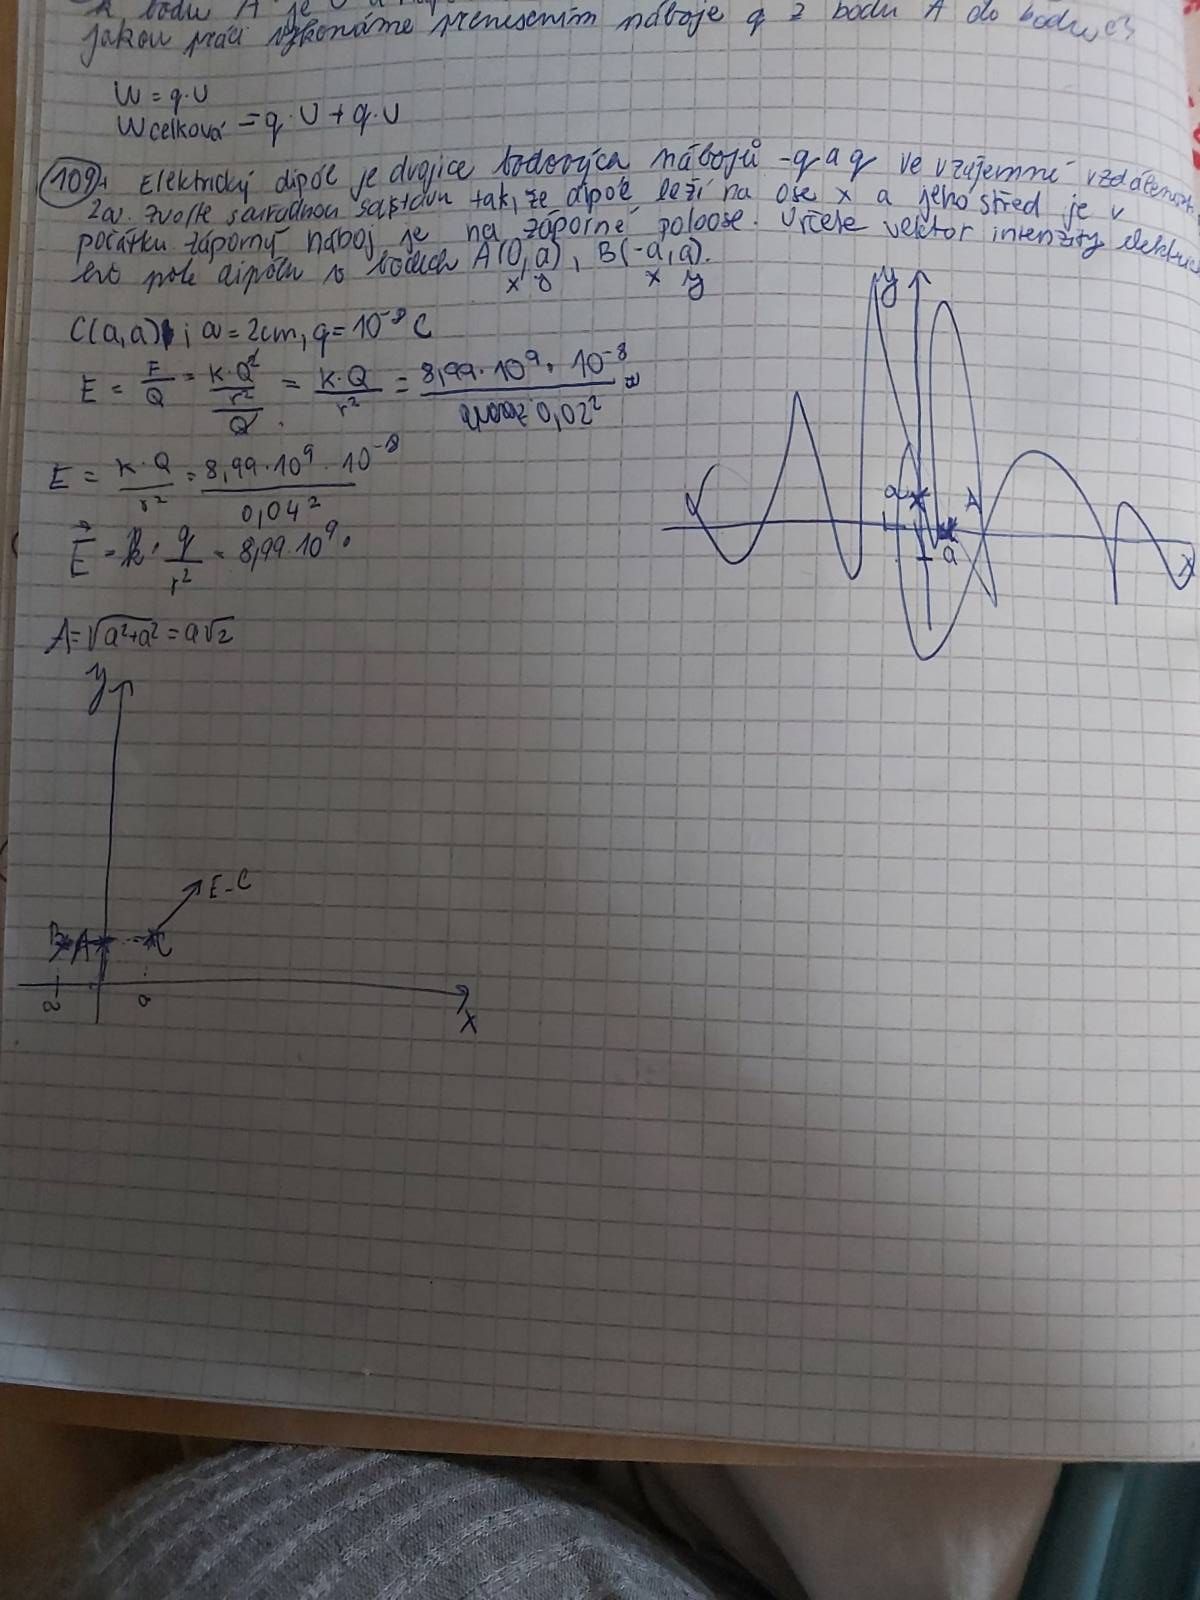 k bodu A je
jakou práci vykonáme přenesením náboje q z bodu A do bodu C?
W = q·U
Wcelková = q·U + q·U
109. Elektrický dipól je dvojice bodových nábojů -q a q ve vzájemné vzdálenosti
2a. Zvolte souřadnou soustavu tak, že dipól leží na ose x a jeho střed je v
počátku záporný náboj je na záporné poloose. Určete vektor intenzity elektric
ého pole dipólu v bodech A(0,a), B(-a,a).
x y x y
C(a,a) ; a = 2cm, q = 10^-8 C
E = F/Q = (K·Q²/r²)/Q = K·Q/r² = 8,99·10^9·10^-8 / 0,02² =
E = K·Q/r² = 8,99·10^9·10^-8 / 0,04²
E⃗ = k·q/r² = 8,99·10^9·
A = √(a²+a²) = a√2
y
a
A
a
x
y
E-C
B A C
a a
x